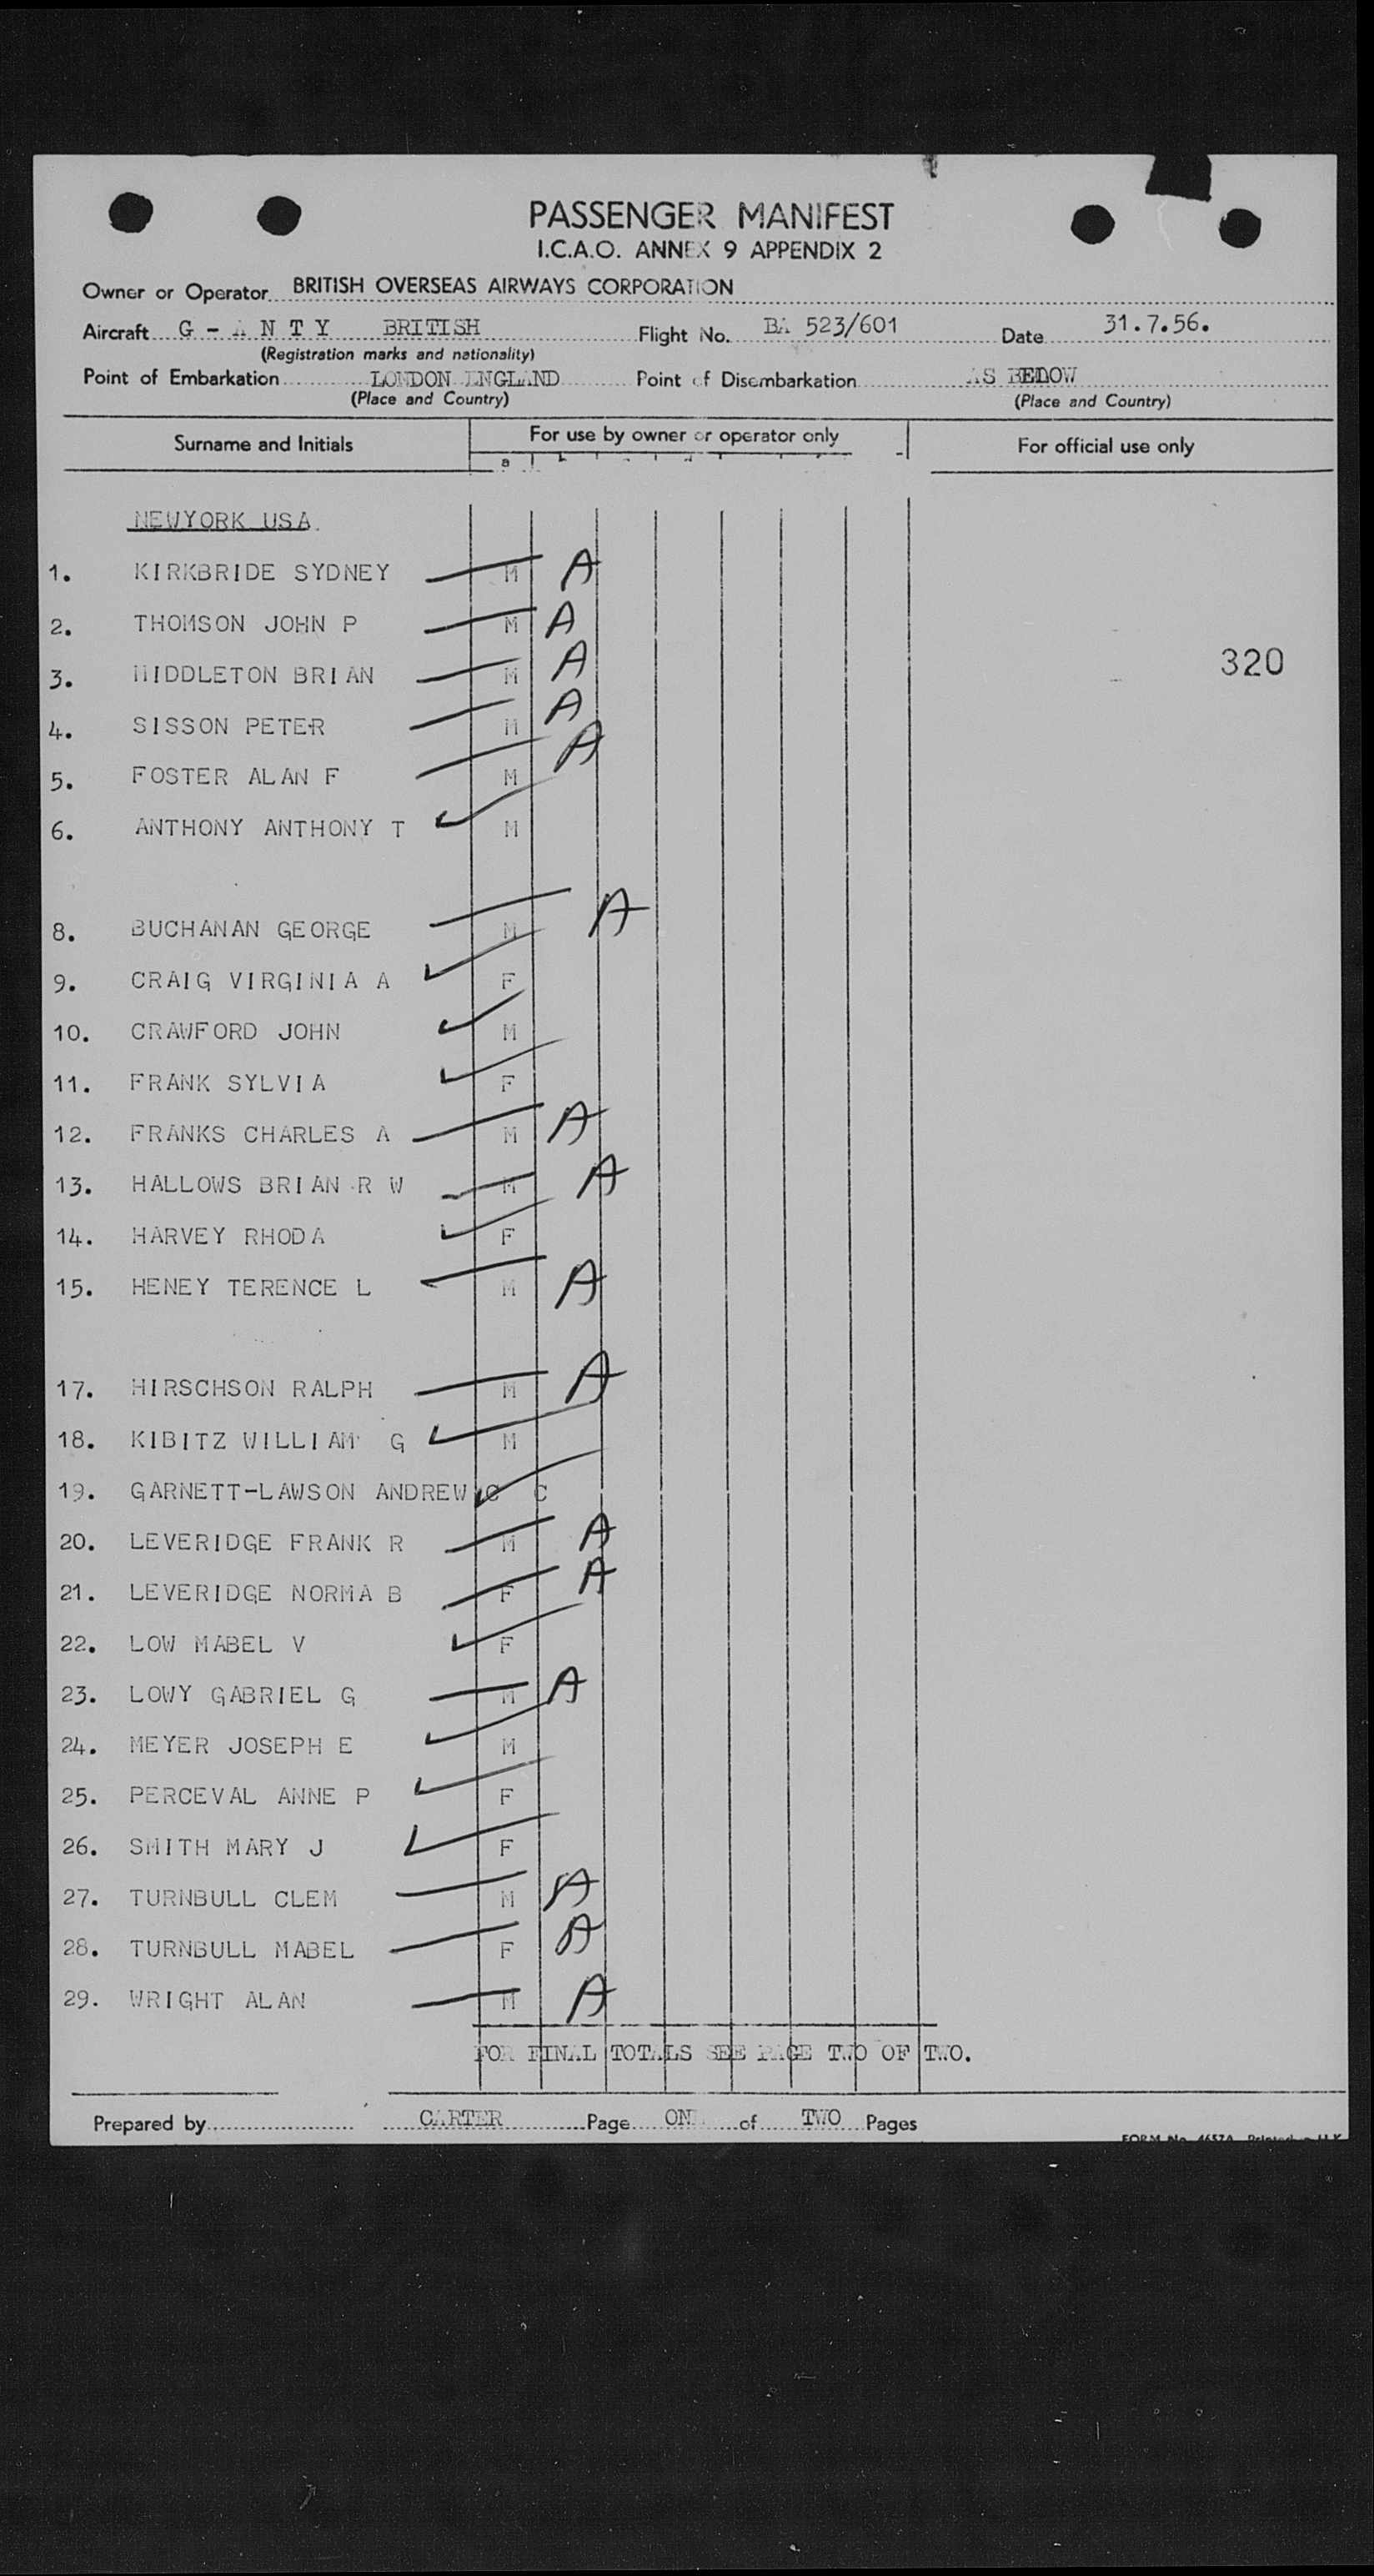 PASSENGER MANIFEST
I.C.A.O. ANNEX 9 APPENDIX 2
Owner or Operator BRITISH OVERSEAS AIRWAYS CORPORATION
Aircraft G - A N T Y BRITISH Flight No. BA 523/601 Date 31.7.56.
(Registration marks and nationality)
Point of Embarkation LONDON ENGLAND Point of Disembarkation AS BELOW
(Place and Country) (Place and Country)
Surname and Initials For use by owner or operator only For official use only
a
NEWYORK USA.
1. KIRKBRIDE SYDNEY M A
2. THOMSON JOHN P M A
320
3. MIDDLETON BRIAN M A
4. SISSON PETER M A
5. FOSTER ALAN F M A
6. ANTHONY ANTHONY T M
8. BUCHANAN GEORGE M A
9. CRAIG VIRGINIA A F
10. CRAWFORD JOHN M
11. FRANK SYLVIA F
12. FRANKS CHARLES A M A
13. HALLOWS BRIAN R W M A
14. HARVEY RHODA F
15. HENEY TERENCE L M A
17. HIRSCHSON RALPH M A
18. KIBITZ WILLIAM G M
19. GARNETT-LAWSON ANDREW C C
20. LEVERIDGE FRANK R M A
21. LEVERIDGE NORMA B F A
22. LOW MABEL V F
23. LOWY GABRIEL G M A
24. MEYER JOSEPH E M
25. PERCEVAL ANNE P F
26. SMITH MARY J F
27. TURNBULL CLEM M A
28. TURNBULL MABEL F A
29. WRIGHT ALAN M A
FOR FINAL TOTALS SEE PAGE TWO OF TWO.
Prepared by CARTER Page ONE of TWO Pages